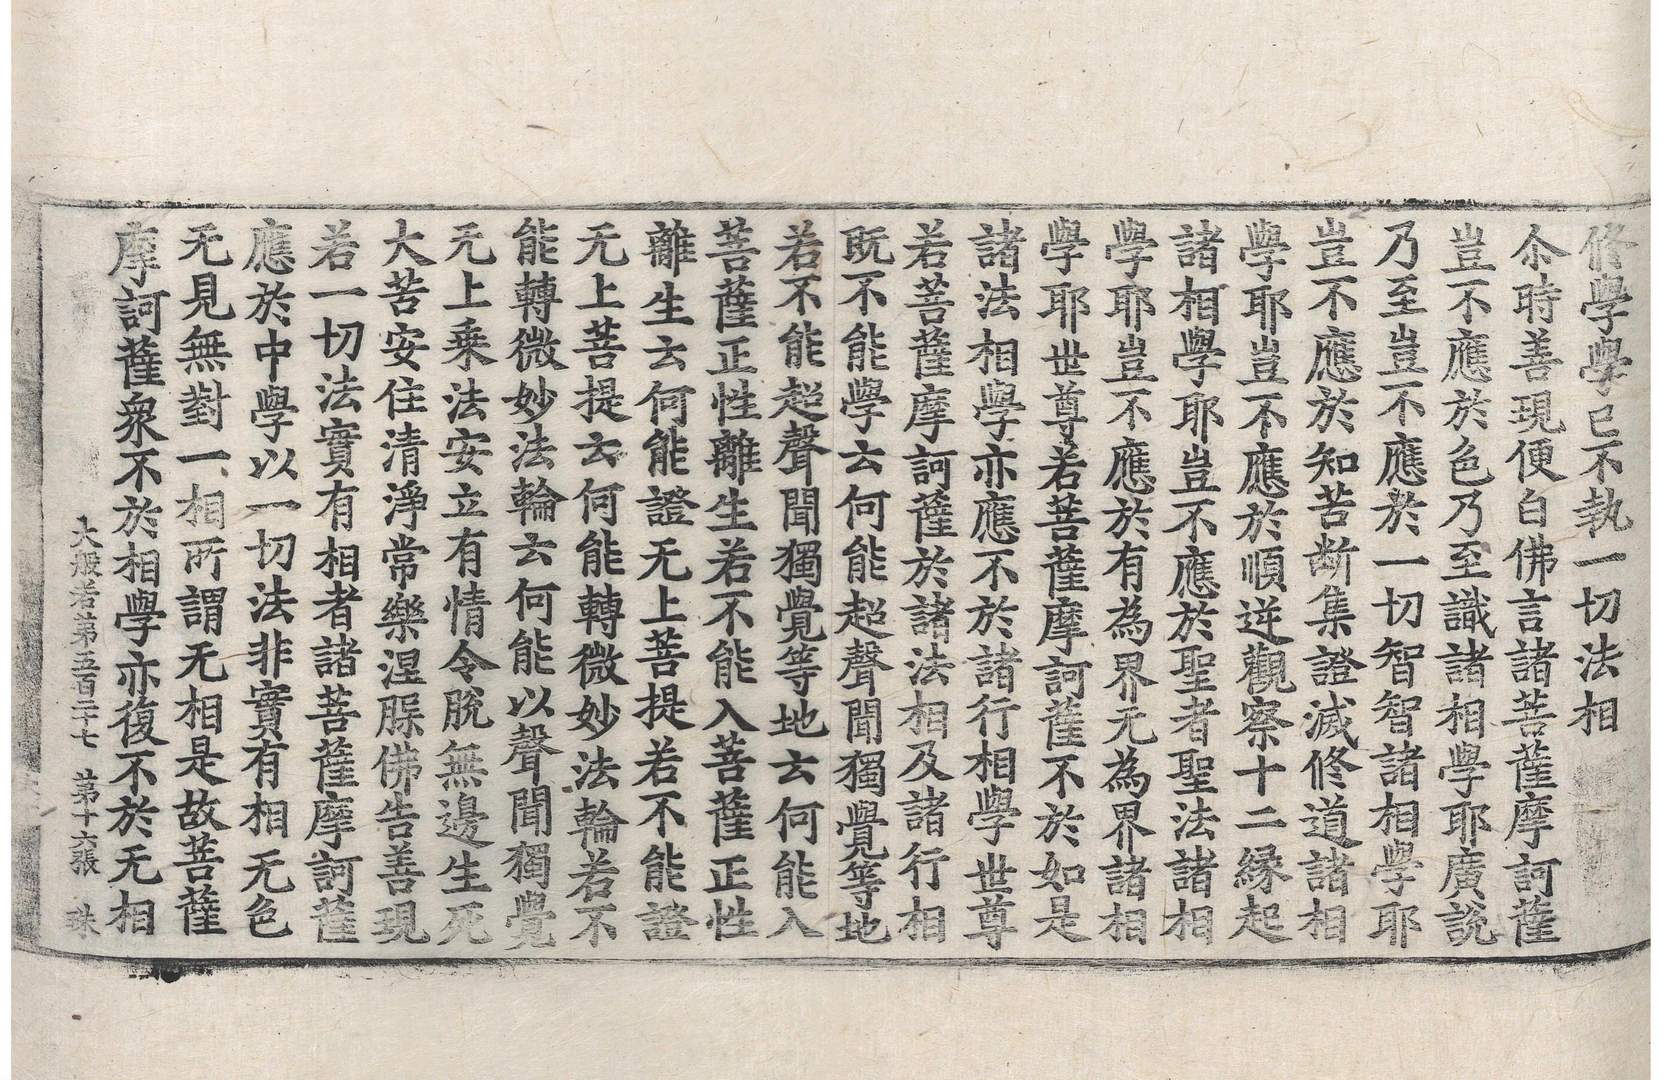 修學學已不執一切法相
尒時善現便白佛言諸菩薩摩訶薩
豈不應於色乃至識諸相學耶廣說
乃至豈不應於一切智智諸相學耶
豈不應於知苦断集證滅修道諸相
學耶豈不應於順逆觀察十二緣起
諸相學耶豈不應於聖者聖法諸相
學耶豈不應於有為界无為界諸相
學耶世尊若菩薩摩訶薩不於如是
諸法相學亦應不於諸行相學世尊
若菩薩摩訶薩於諸法相及諸行相
既不能學云何能超聲聞獨覺等地
若不能超聲聞獨覺等地云何能入
菩薩正性離生若不能入菩薩正性
離生云何能證无上菩提若不能證
无上菩提云何能轉微妙法輪若不
能轉微妙法輪云何能以聲聞獨覺
无上乘法安立有情令脫無邊生死
大苦安住清淨常樂涅槃佛告善現
若一切法實有相者諸菩薩摩訶薩
應於中學以一切法非實有相无色
无見無對一相所謂无相是故菩薩
摩訶薩衆不於相學亦復不於无相
大般若第五百二十七 第十六張 珠